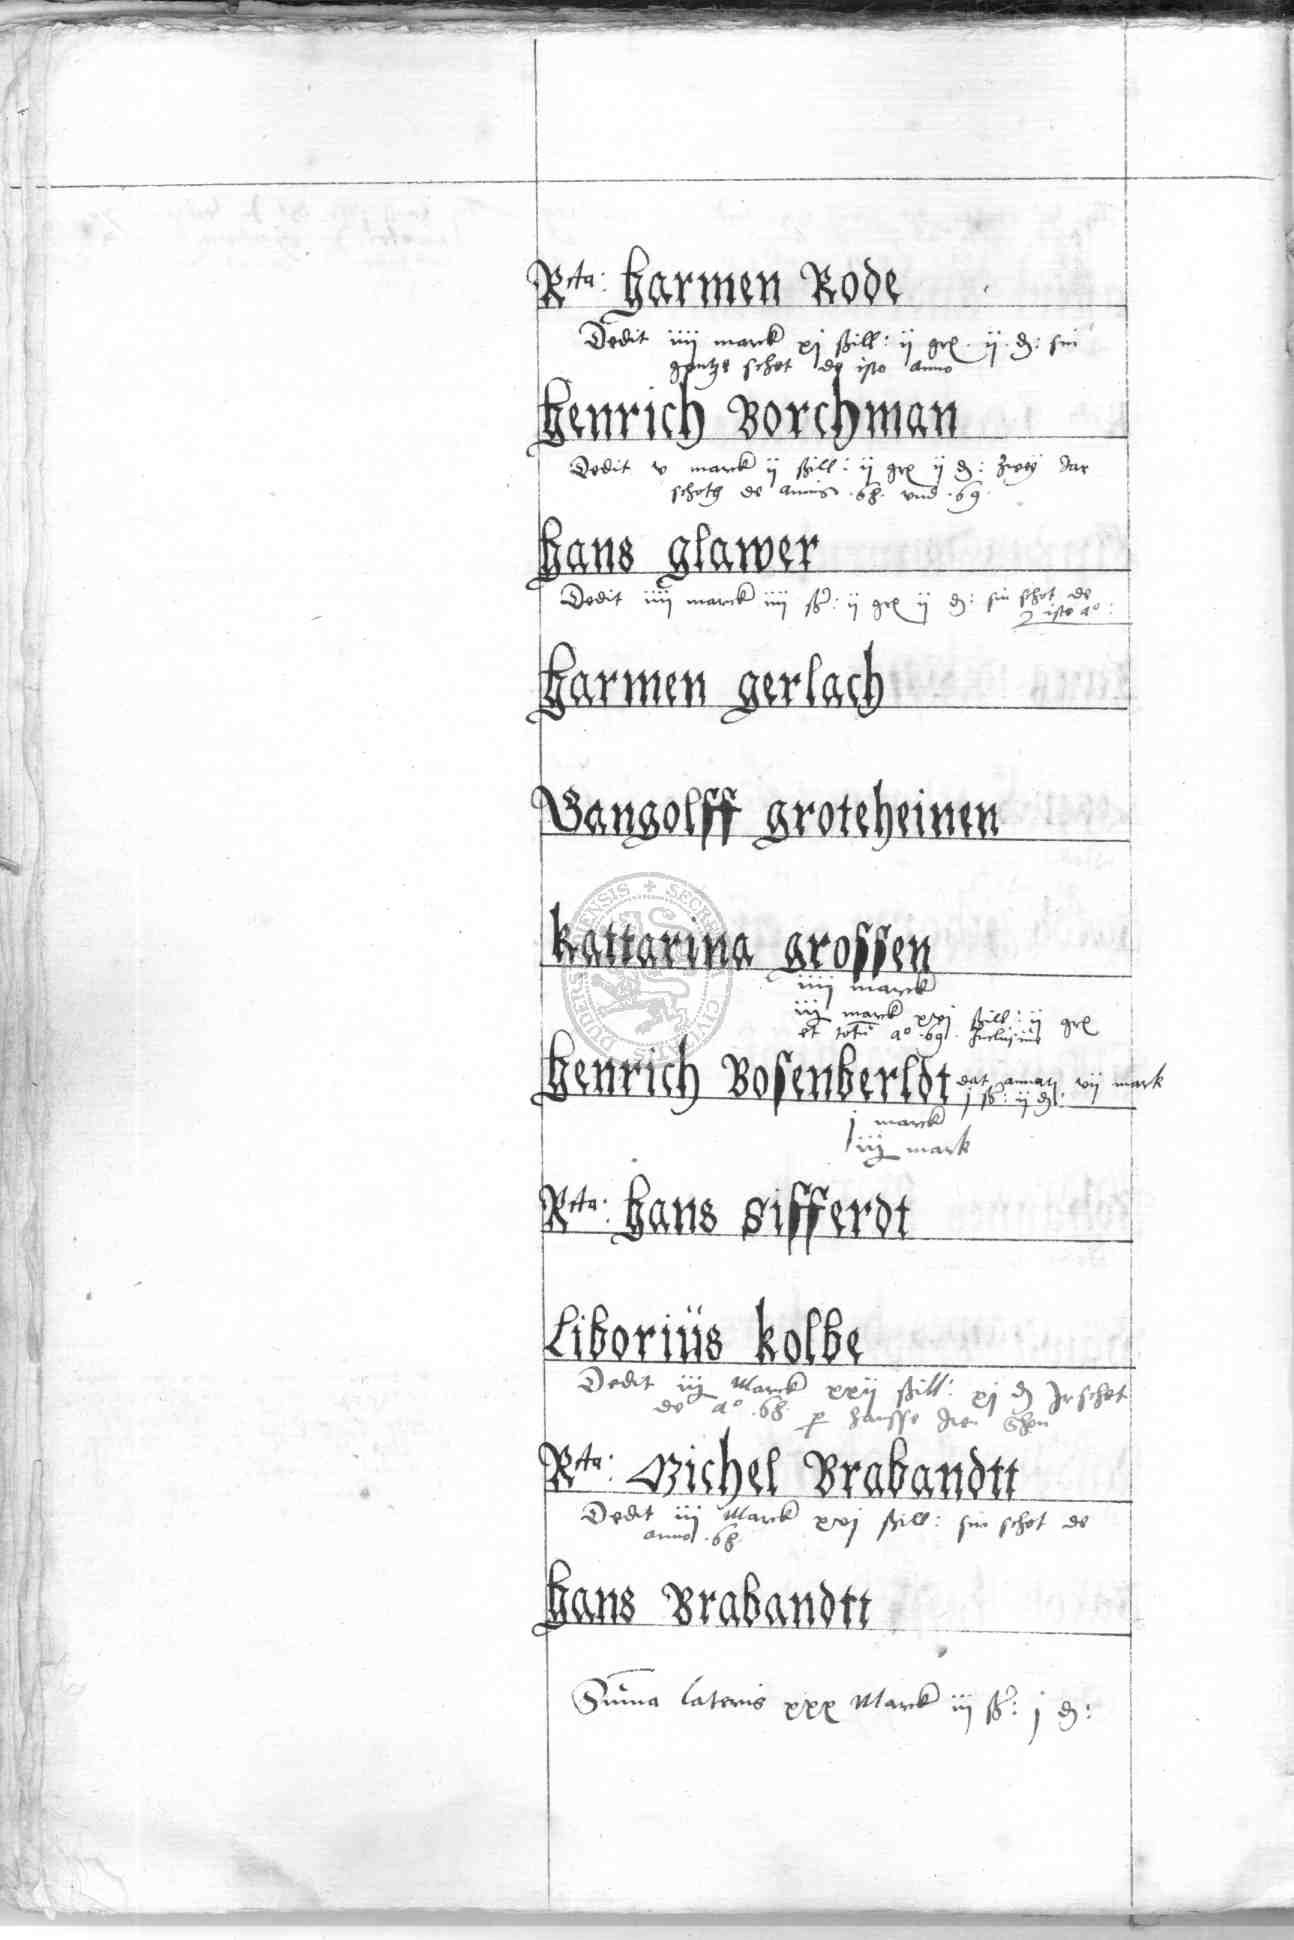 Rcta: Harmen Rode
Dedit iiii marck xj ßill: ij grz. ij. d: sin
gantze schot de isto anno
Henrich Borchman
Dedit v marck ij ßill: ij grz ij d: zwey Jar
schotz de annis .68. vnd .69.
Hans glawer
Dedit iiij marck iiij ß: ij grz ij d: sin schot de
isto ao:
Harmen gerlach
Gangolff groteheinen
Kattarina grossen
iiij marck
iij marck xvj ßill: ij grz
et totū ao .69. Inclusius
Henrich Bosenberldt dat annatj vij mark
j ß: ij d:
j marck
iij mark
Rcta: Hans Sifferdt
Liborius Kolbe
Dedit iij Marck xxij ßill: xj d Jr schot
de ao .68. p hansse
Rcta: Michel Brabandtt
Dedit iij Marck xvj ßill: sin schot de
anno .68.
Hans Brabandtt
Suma lateris xxx Marck iij ß: j d: